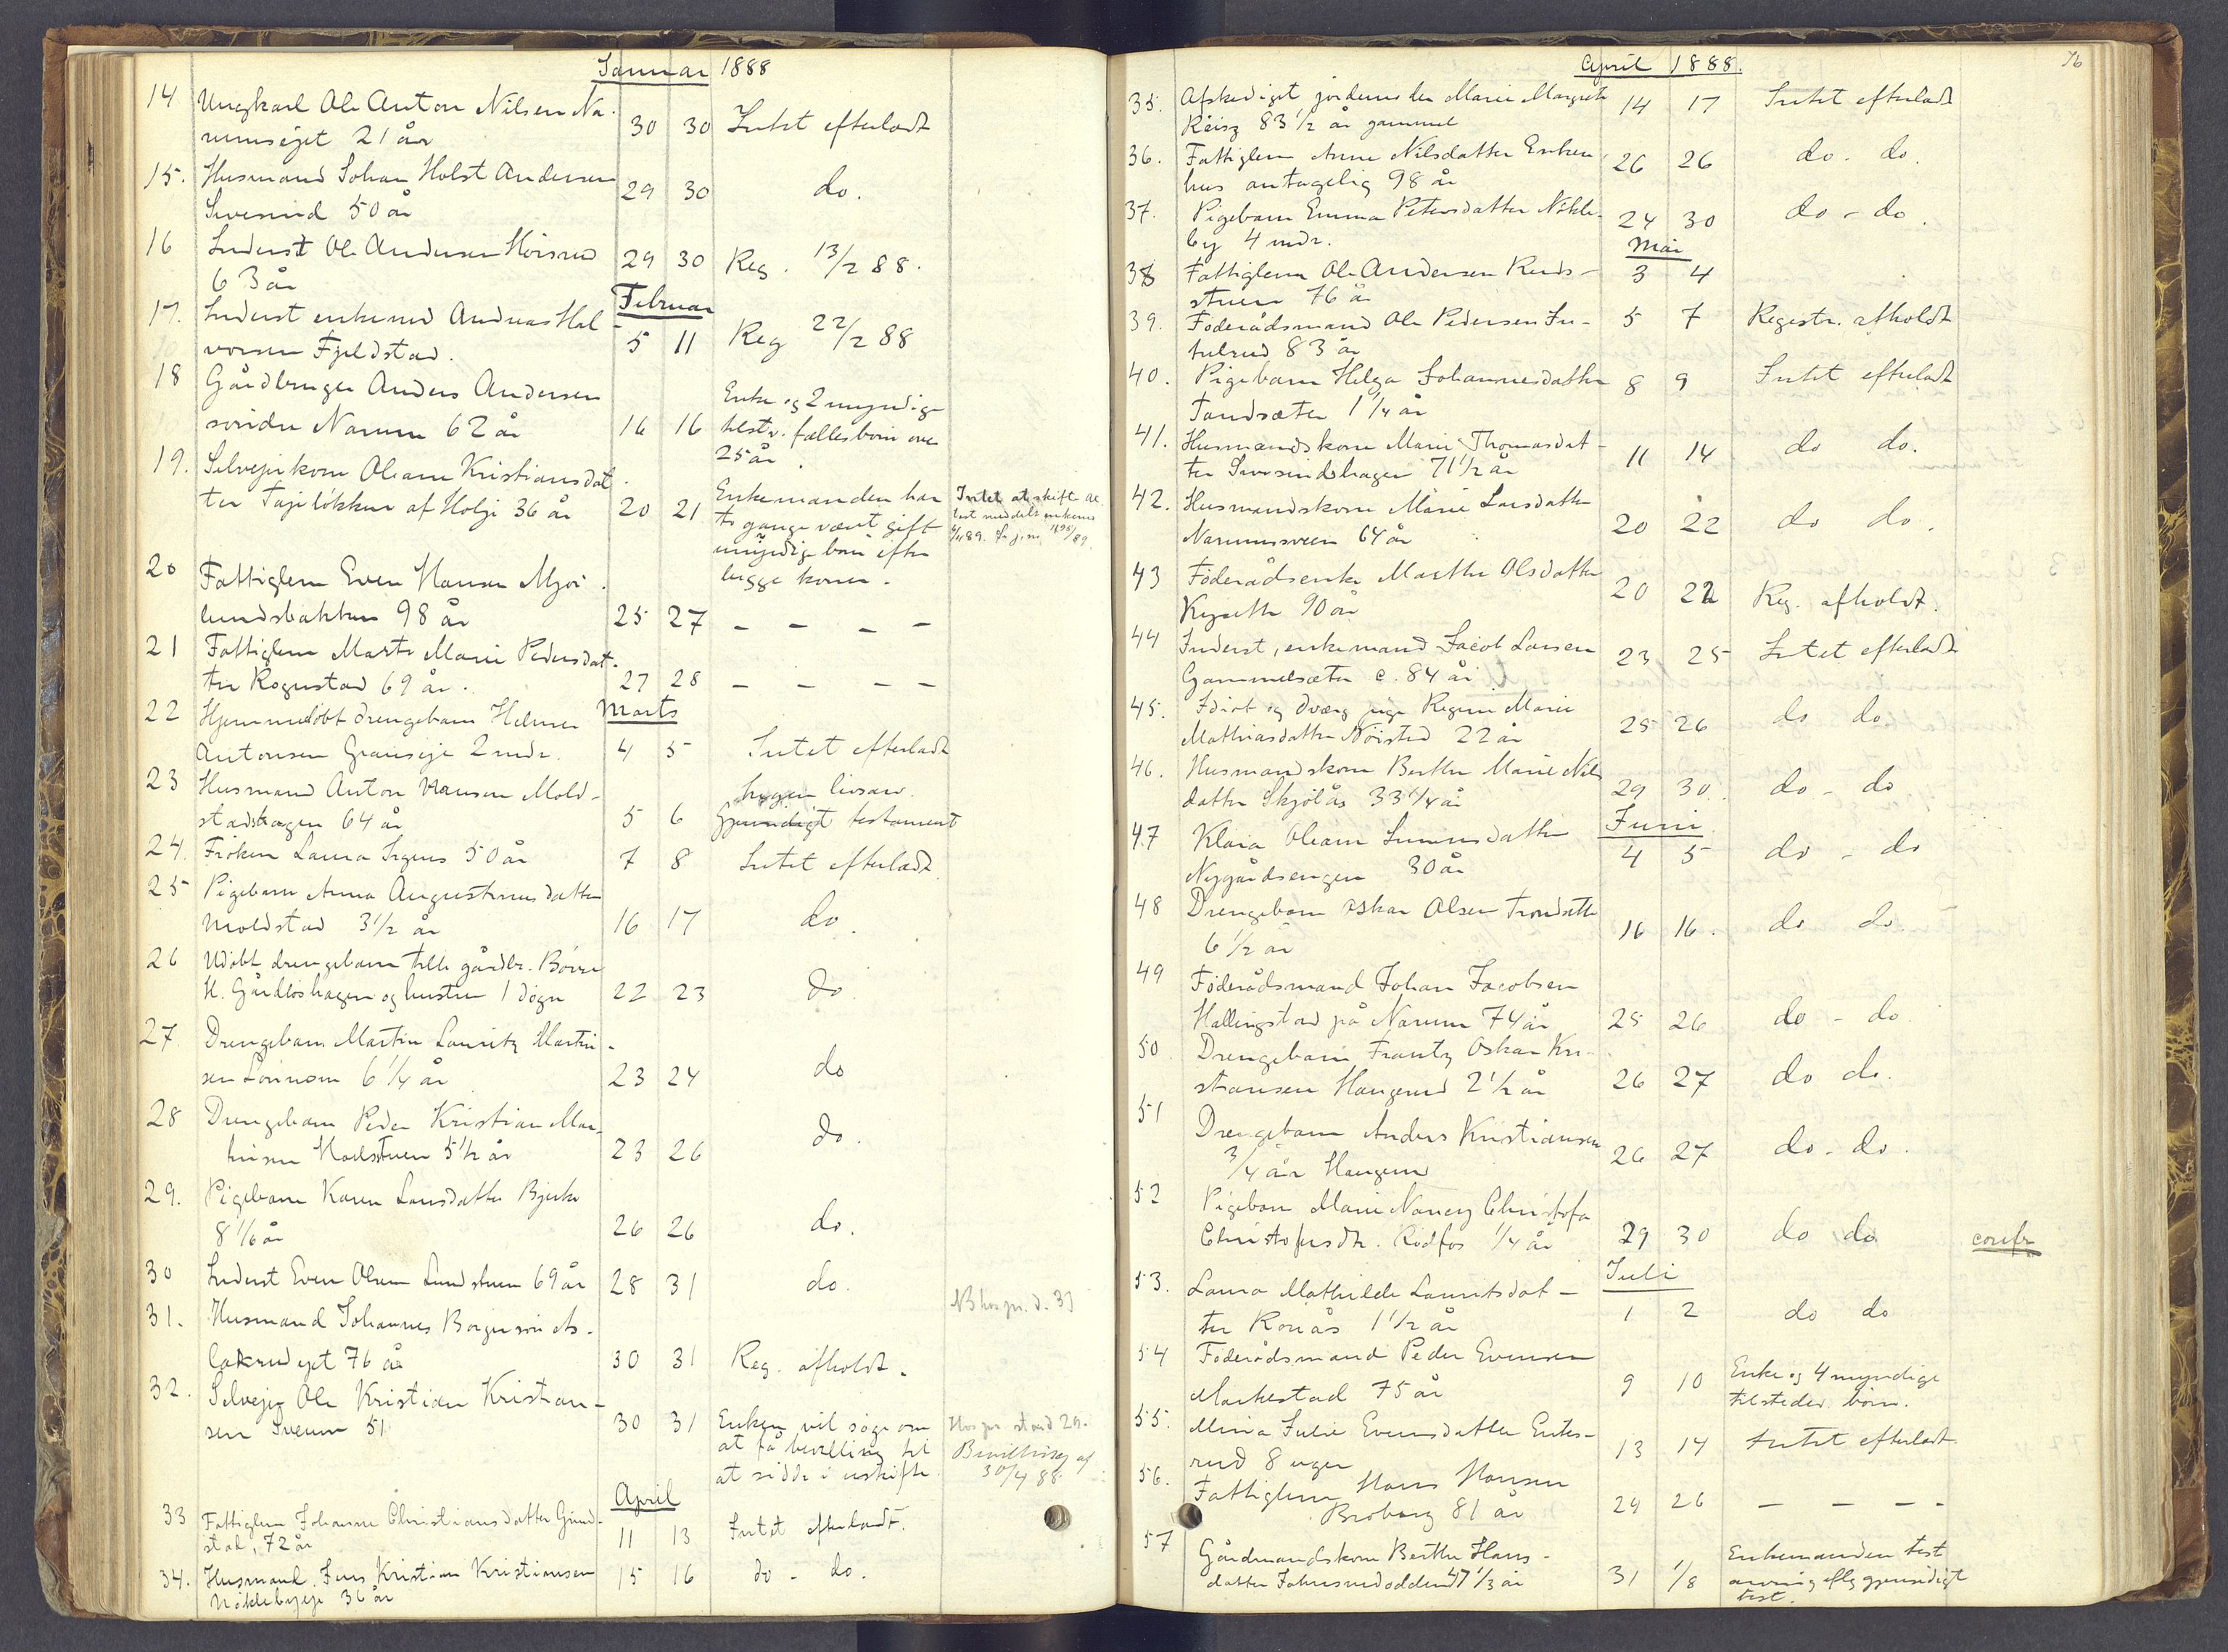 Januar 1888
14 Ungkarl Ole Anton Nilsen Na-
rumsejet 21 år 30 30 Intet efterladt
15. Husmand Johan Holst Andersen
Sivesind 50 år 29 30 do.
16 Inderst Ole Andersen Hörsrud
63 år 29 30 Reg. 13/2 88.
Februar
17. Inderst enkemd Andreas Hal-
vorsen Fjeldstad. 5 11 Reg 22/2 88
18 Gårdbruger Anders Andersen
søndre Narum 62 år 16 16 Enke og 2 myndige
tilstv. fællesbörn over
25 år.
19. Selvejerkone Oleane Kristiansdat-
ter Tajelökken af Holje 36 år 20 21 Enkemanden har
to gange været gift
umyndige börn efter
begge koner.
Intet at skifte at-
test meddelt enkemd
6/4 89. cfr j.nr. 1695/89.
20 Fattiglem Even Hansen Mjör-
lundsbakken 98 år 25 27 – – – –
21 Fattiglem Marte Marie Pedersdat-
ter Rognstad 69 år. 27 28 – – – –
Marts
22 Hjemmedöbt drengebarn Helmer
Antonsen Granseje 2 mdr. 4 5 Intet efterladt
23 Husmand Anton Hansen Mold-
stadhagen 64 år 5 6 Ingen livsarv.
Gjensidigt testament
24. Fröken Laura Irgens 50 år 7 8 Intet efterladt
25 Pigebarn Anna Augustinusdatter
Moldstad 3½ år 16 17 do.
26 Udöbt drengebarn tilh. gårdbr. Börre
H. Gårdløshagen og hustru 1 døgn 22 23 do
27. Drengebarn Martin Lauritz Martin-
sen Lönnom 6¼ år 23 24 do
28 Drengebarn Peder Kristian Mar-
tinsen Hoelstuen 5½ år 23 26 do.
29. Pigebarn Karen Larsdatter Bjerke
8 1/6 år 26 26 do.
30 Inderst Even Olsen Lundstuen 69 år 28 31 do.
NB hos pr. d. 31
31. Husmand Johannes Borgersen As-
lakrudejet 76 år 30 31 Reg. afholdt.
32. Selvejer Ole Kristian Kristian-
sen Sveum 51 30 31 Enken vil söge om
at få bevilling til
at sidde i uskifte.
Hos pr. stard 29.
Bevilling af
30/4 88.
April
33 Fattiglem Johanne Christiansdatter Grind-
stad, 72 år 11 13 Intet efterladt.
34. Husmand Jens Kristian Kristiansen
Nöklebyeje 36 år 15 16 do - do.
76
April 1888.
35. Afskediget jordemoder Marie Margrete
Reisz 83½ år gammel 14 17 Intet efterladt
36. Fattiglem Anne Nilsdatter Enken-
hus antagelig 98 år 26 26 do. do.
37. Pigebarn Emma Petersdatter Nökle-
by 4 mdr. 24 30 do - do.
Mai
38 Fattiglem Ole Andersen Ruds-
stuen 76 år 3 4
39. Föderådsmand Ole Pedersen In-
tulrud 83 år 5 7 Registr. afholdt
40. Pigebarn Helga Johannesdatter
Tandsæter 1¼ år 8 9 Intet efterladt
41. Husmandskone Marie Thomasdat-
ter Sivesindshagen 71½ år 11 14 do do.
42. Husmandskone Marie Larsdatter
Narumsveen 64 år 20 22 do do.
43 Föderådsenke Marthe Olsdatter
Kyseth 90 år 20 22 Reg. afholdt.
44 Inderst, enkemand Jacob Larsen
Gammelsæter c. 84 år 23 25 Intet efterladt
45. Idiot og dværg pige Regine Marie
Mathiasdatter Nöisted 22 år 25 26 do do
46. Husmandskone Berthe Marie Nils-
datter Skjölås 33¼ år 29 30 do - do
Juni
47 Klara Oleane Simensdatter
Nygårdsengen 30 år 4 5 do - do
48 Drengebarn Oskar Olsen Trondseth
6½ år 16 16. do do.
49 Föderådsmand Johan Jacobsen
Hallingstad på Narum 74 år 25 26 do - do
50 Drengebarn Frantz Oskar Kri-
stiansen Haugerud 2½ år 26 27 do do.
51 Drengebarn Anders Kristiansen
¾ år Haugerud 26 27 do - do.
52 Pigebarn Marie Nancy Christofa
Christofersdtr. Rödfos ¼ år 29 30 do do
confr
Juli
53. Laura Mathilde Lauritsdat-
ter Ronås 1½ år 1 2 do do
54 Föderådsmand Peder Evensen
Markestad 75 år 9 10 Enke og 4 myndige
tilstedev. börn.
55. Mina Julie Evensdatter Enke-
rud 8 uger 13 14 Intet efterladt
56. Fattiglem Hans Hansen
Broberg 81 år 24 26 – – – –
57 Gårdmandskone Berthe Hans-
datter Johnsrudodden 47 1/3 år 31 1/8 Enkemanden test
arving eftr gjensidigt
test.